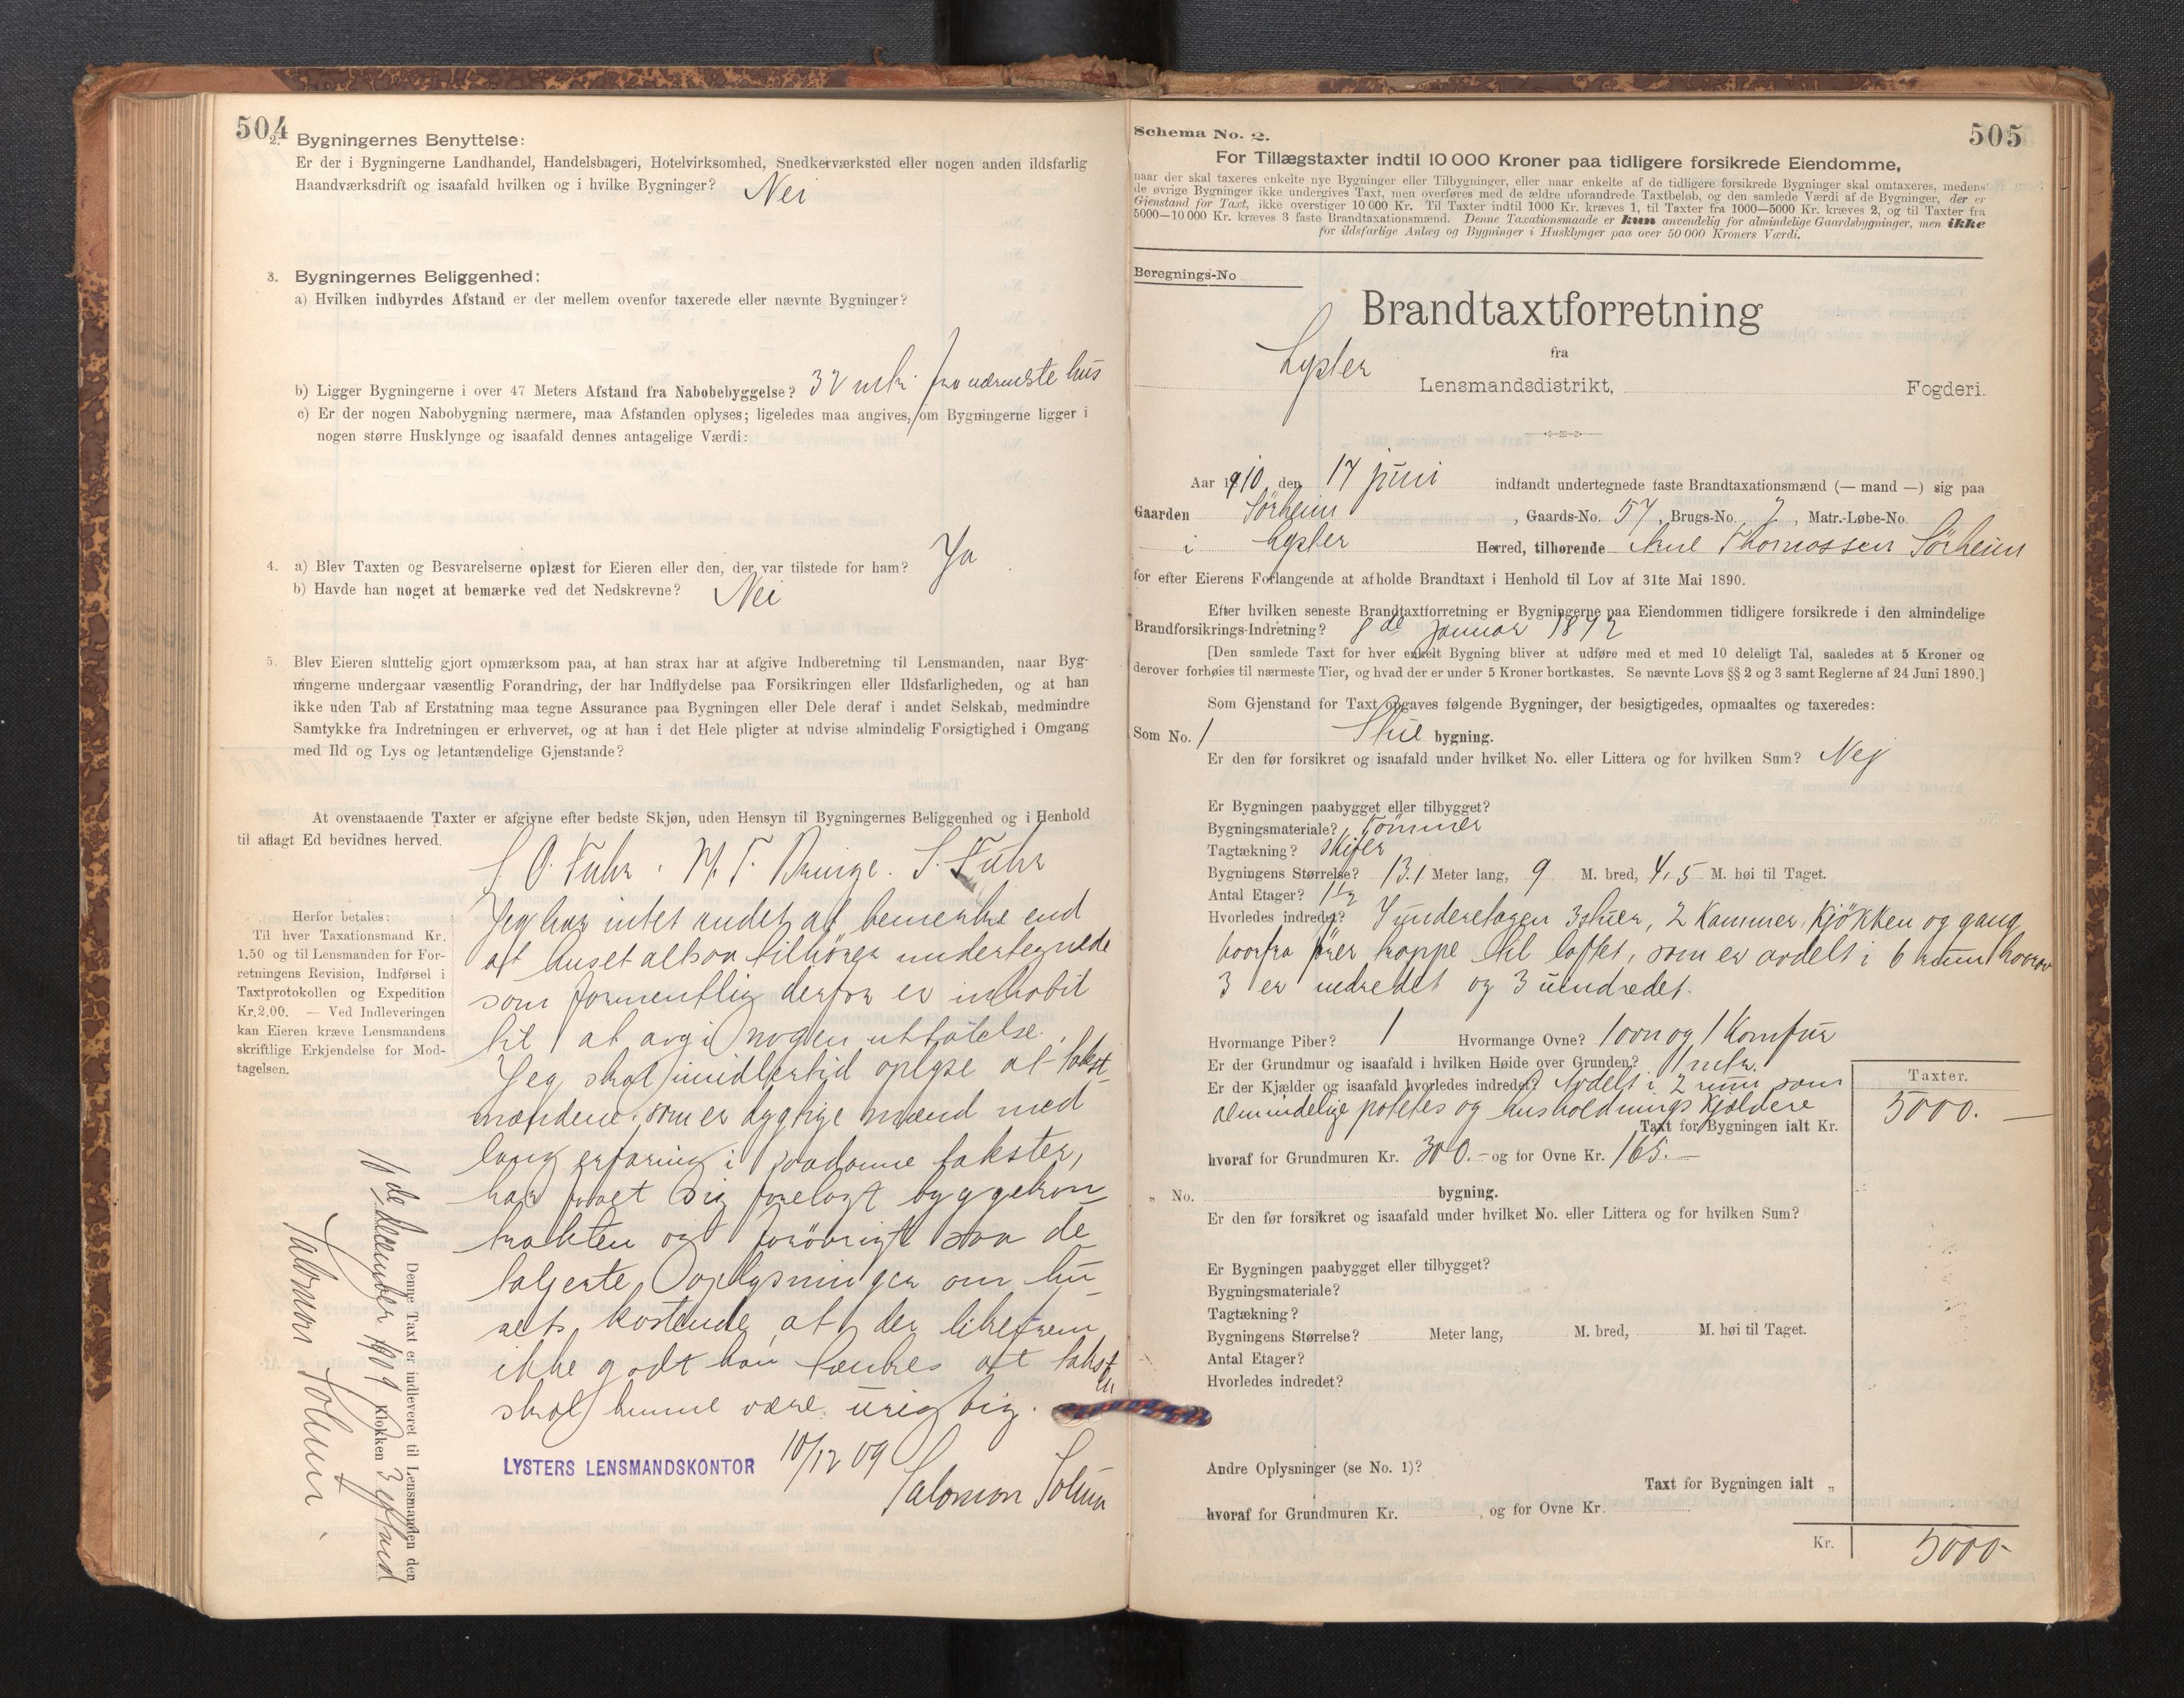 504
2. Bygningernes Benyttelse:
Er der i Bygningerne Landhandel, Handelsbageri, Hotelvirksomhed, Snedkerværksted eller nogen anden ildsfarlig
Haandværksdrift og isaafald hvilken og i hvilke Bygninger? Nei
3. Bygningernes Beliggenhed:
a) Hvilken indbyrdes Afstand er der mellem ovenfor taxerede eller nævnte Bygninger?
b) Ligger Bygningerne i over 47 Meters Afstand fra Nabobebyggelse? 32 mtr. fra nærmeste hus
c) Er der nogen Nabobygning nærmere, maa Afstanden oplyses; ligeledes maa angives, om Bygningerne ligger i
nogen større Husklynge og isaafald dennes antagelige Værdi:
4. a) Blev Taxten og Besvarelserne oplæst for Eieren eller den, der var tilstede for ham? Ja
b) Havde han noget at bemærke ved det Nedskrevne? Nei
5. Blev Eieren sluttelig gjort opmærksom paa, at han strax har at afgive Indberetning til Lensmanden, naar Byg-
ningerne undergaar væsentlig Forandring, der har Indflydelse paa Forsikringen eller Ildsfarligheden, og at han
ikke uden Tab af Erstatning maa tegne Assurance paa Bygningen eller Dele deraf i andet Selskab, medmindre
Samtykke fra Indretningen er erhvervet, og at han i det Hele pligter at udvise almindelig Forsigtighed i Omgang
med Ild og Lys og letantændelige Gjenstande?
At ovenstaaende Taxter er afgivne efter bedste Skjøn, uden Hensyn til Bygningernes Beliggenhed og i Henhold
til aflagt Ed bevidnes herved.
S. O. Fuhr. M. T. S. Fuhr
Jeg har intet andet at bemerke end
at huset altsaa tilhörer undertegnede
som formentlig derfor er inhabil
til at avgi nogen uttalelse.
Jeg skal imidlertid oplyse at takst-
mændene, som er dygtige mænd med
lang erfaring i saadanne takster,
har faaet sig forelagt byggekon-
trakten og forövrigt saa de-
taljerte oplysninger om hu-
sets kostende, at der likefrem
ikke godt kan tænkes at takst
en
skal kunne være urigtig.
LYSTERS LENSMANDSKONTOR 10/12 09
Salomon Solum
Herfor betales:
Til hver Taxationsmand Kr.
1.50 og til Lensmanden for For-
retningens Revision, Indførsel i
Taxtprotokollen og Expedition
Kr. 2.00. — Ved Indleveringen
kan Eieren kræve Lensmandens
skriftlige Erkjendelse for Mod-
tagelsen.
Denne Taxt er indleveret til Lensmanden den
10de december 1909 Klokken 3 eftmd
Salomon Solum.
505
Schema No. 2.
For Tillægstaxter indtil 10 000 Kroner paa tidligere forsikrede Eiendomme,
naar der skal taxeres enkelte nye Bygninger eller Tilbygninger, eller naar enkelte af de tidligere forsikrede Bygninger skal omtaxeres, medens
de øvrige Bygninger ikke undergives Taxt, men overføres med de ældre uforandrede Taxtbeløb, og den samlede Værdi af de Bygninger, der er
Gjenstand for Taxt, ikke overstiger 10 000 Kr. Til Taxter indtil 1000 Kr. kræves 1, til Taxter fra 1000—5000 Kr. kræves 2, og til Taxter fra
5000—10 000 Kr. kræves 3 faste Brandtaxationsmænd. Denne Taxationsmaade er kun anvendelig for almindelige Gaardsbygninger, men ikke
for ildsfarlige Anlæg og Bygninger i Husklynger paa over 50 000 Kroners Værdi.
Beregnings-No
Brandtaxtforretning
fra
Lyster Lensmandsdistrikt, Fogderi.
Aar 1910, den 17 juni indfandt undertegnede faste Brandtaxationsmænd (— mand —) sig paa
Gaarden Sörheim, Gaards-No. 57, Brugs-No. 2, Matr.-Løbe-No.
i Lyster Herred, tilhørende Arne Thomassen Sörheim
for efter Eierens Forlangende at afholde Brandtaxt i Henhold til Lov af 31te Mai 1890.
Efter hvilken seneste Brandtaxtforretning er Bygningerne paa Eiendommen tidligere forsikrede i den almindelige
Brandforsikrings-Indretning? 8de januar 1892
[Den samlede Taxt for hver enkelt Bygning bliver at udføre med et med 10 deleligt Tal, saaledes at 5 Kroner og
derover forhøies til nærmeste Tier, og hvad der er under 5 Kroner bortkastes. Se nævnte Lovs §§ 2 og 3 samt Reglerne af 24 Juni 1890.]
Som Gjenstand for Taxt opgaves følgende Bygninger, der besigtigedes, opmaaltes og taxeredes:
Som No. 1 Stue bygning.
Er den før forsikret og isaafald under hvilket No. eller Littera og for hvilken Sum? Nej
Er Bygningen paabygget eller tilbygget?
Bygningsmateriale? Tömmer
Tagtækning? Skifer
Bygningens Størrelse? 13.1 Meter lang, 9 M. bred, 4,5 M. høi til Taget.
Antal Etager? 1 1/2
Hvorledes indredet? I underetagen 3 stuer, 2 Kammer, kjökken og gang
hvorfra förer trappe til loftet, som er avdelt i 6 rum hvorav
3 er indredet og 3 uindredet.
Hvormange Piber? 1 Hvormange Ovne? 1 ovn og 1 Komfur
Er der Grundmur og isaafald i hvilken Høide over Grunden? 1 mtr.
Er der Kjælder og isaafald hvorledes indredet? Avdelt i 2 rum som
almindelige potetes og husholdnings kjældere
Taxter.
Taxt for Bygningen ialt Kr. 5000.—
hvoraf for Grundmuren Kr. 300.- og for Ovne Kr. 165.—
„ No. bygning.
Er den før forsikret og isaafald under hvilket No. eller Littera og for hvilken Sum?
Er Bygningen paabygget eller tilbygget?
Bygningsmateriale?
Tagtækning?
Bygningens Størrelse? Meter lang, M. bred, M. høi til Taget.
Antal Etager?
Hvorledes indredet?
Andre Oplysninger (se No. 1)?
Taxt for Bygningen ialt „
hvoraf for Grundmuren Kr. , og for Ovne Kr.
Kr. 5000-